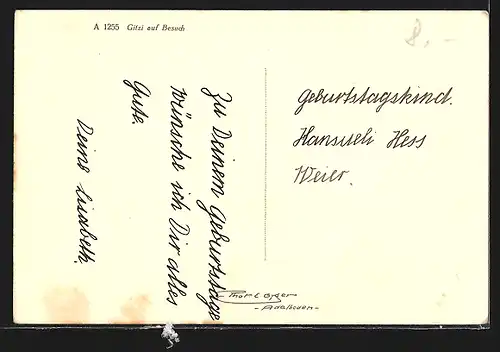 A 1255 Gitzi auf Besuch
8,-
Zu Deinem Geburtstage
wünsche ich Dir alles
Gute.
Deine Lisabeth.
Geburtstagskind.
Hansueli Hess
Weier.
- Adelboden -